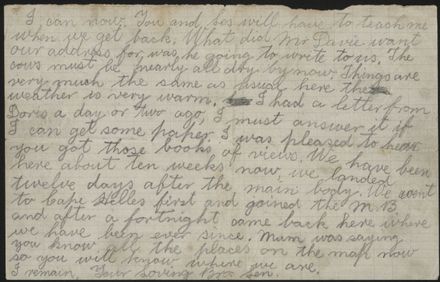 I can now. You and Les will have to teach me
when we get back. What did Mr Davie want
our address for, was he going to write to us. The
cows must be nearly all dry by now. Things are
very much the same as usual here the
weather is very warm, I had a letter from
Doris a day or two ago, I must answer it if
I can get some paper. I was pleased to hear
you got those books of views. We have been
here about ten weeks now, we landed
twelve days after the main body. We went
to Cape Helles first and joined the M B
and after a fortnight came back here where
we have been ever since. Mum was saying
you know all the places on the map now
so you will know where we are,
I remain, Your loving Bro Len.